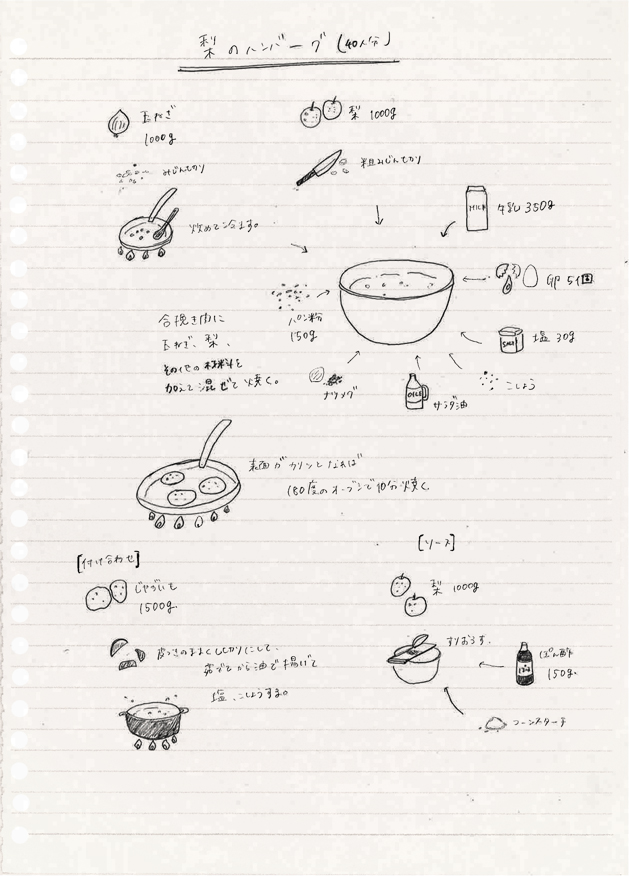 梨のハンバーグ(40人分)
玉ねぎ
1000g
みじん切り
炒めて冷ます。
梨 1000g
粗みじん切り
MILK
牛乳 350g
卵 5個
SALT
塩 30g
こしょう
OIL
サラダ油
ナツメグ
パン粉
150g
合挽き肉に
玉ねぎ、梨、
その他の材料を
加えて混ぜて焼く。
表面がカリッとなれば
180度のオーブンで10分焼く
[付け合わせ]
じゃがいも
1500g
皮つきのままくし切りにして、
茹でてから油で揚げて
塩、こしょうする。
[ソース]
梨 1000g
すりおろす。
ぽん酢
150g
コーンスターチ